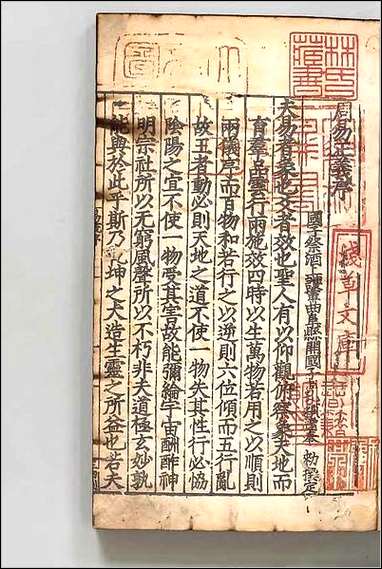 周易正義序
國子祭酒上護軍曲阜縣開國子臣孔穎達奉 勑撰定
夫易者象也爻者效也聖人有以仰觀俯察象天地而
育羣品雲行雨施效四時以生萬物若用之以順則
兩儀序而百物和若行之以逆則六位傾而五行亂
故王者動必則天地之道不使一物失其性行必協
陰陽之宜不使一物受其害故能彌綸宇宙酬酢神
明宗社所以无窮風聲所以不朽非夫道極玄妙孰
能與於此乎斯乃乾坤之大造生靈之所益也若夫
林氏藏書
淺草文庫